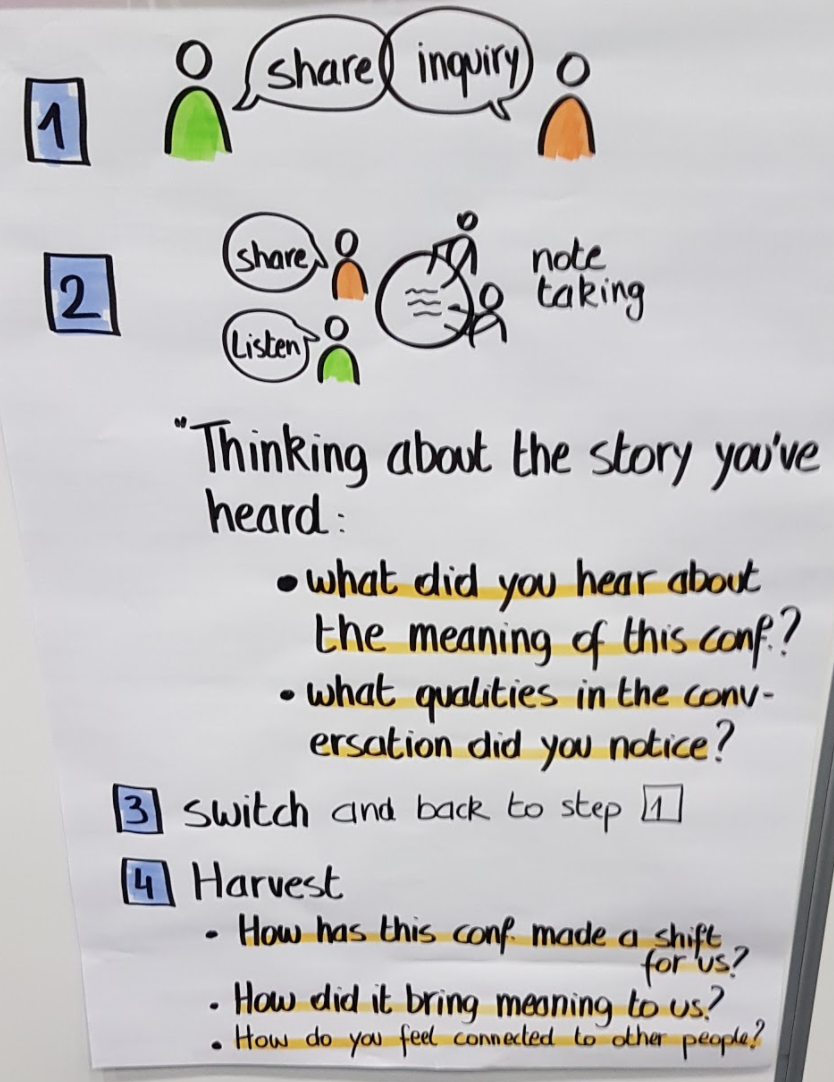 1 share inquiry
2 share note
Listen taking
"Thinking about the story you've
heard:
• what did you hear about
the meaning of this conf.?
• what qualities in the conv-
ersation did you notice?
3 switch and back to step 1
4 Harvest
• How has this conf. made a shift
for us?
• How did it bring meaning to us?
• How do you feel connected to other people?